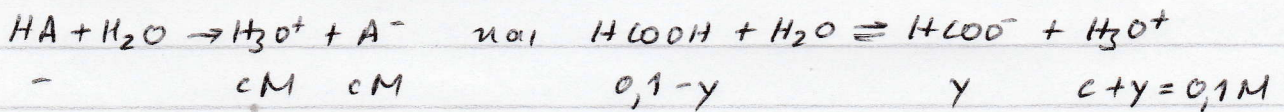 HA + H2O → H3O+ + A- και HCOOH + H2O ⇌ HCOO- + H3O+
- cM cM 0,1-y y c+y=0,1M